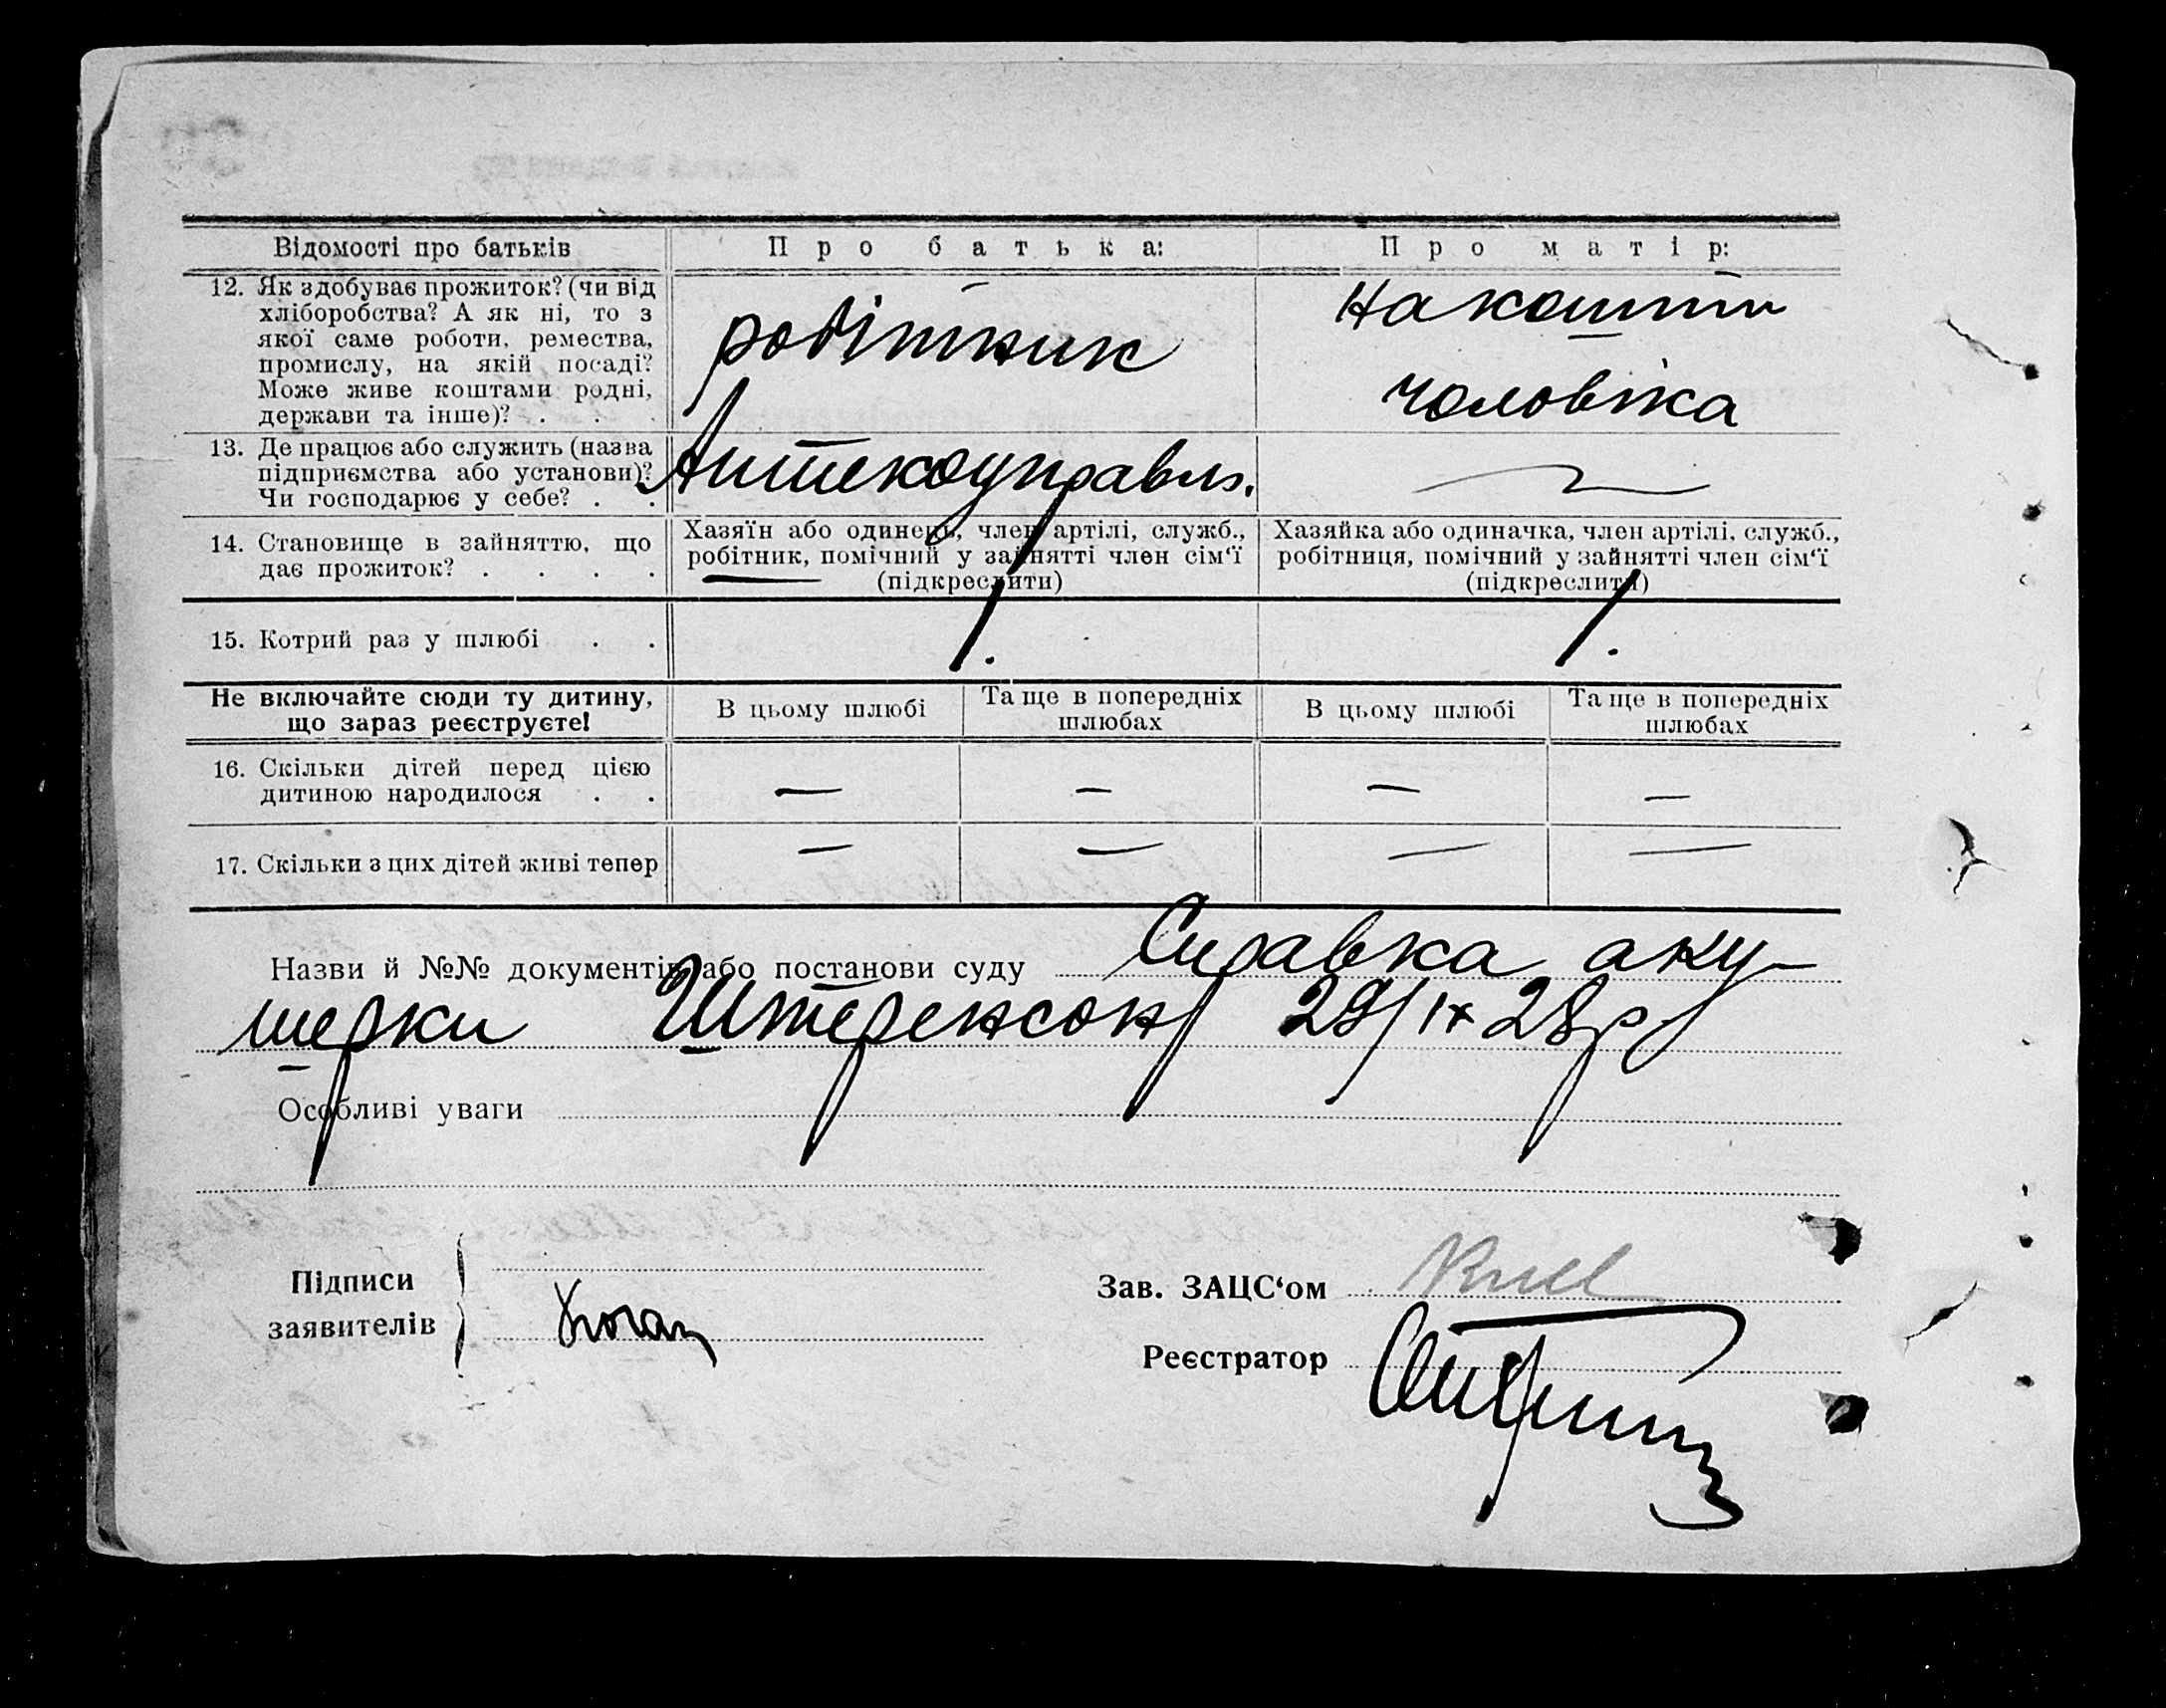 Відомості про батьків
Про батька:
Про матір:
12. Як здобуває прожиток? (чи від
хліборобства? А як ні, то з
якої саме роботи, ремества,
промислу, на якій посаді?
Може живе коштами родні,
держави та інше)? . . .
робітник
На кошти
чоловіка
13. Де працює або служить (назва
підприємства або установи)?
Чи господарює у себе? . .
Аптекоуправл.
—
14. Становище в зайняттю, що
дає прожиток? . . . .
Хазяїн або одинець, член артілі, служб.,
робітник, помічний у зайнятті член сім‘ї
(підкреслити)
Хазяйка або одиначка, член артілі, служб.,
робітниця, помічний у зайнятті член сім‘ї
(підкреслити)
15. Котрий раз у шлюбі . .
1.
1.
Не включайте сюди ту дитину,
що зараз реєструєте!
В цьому шлюбі
Та ще в попередніх
шлюбах
В цьому шлюбі
Та ще в попередніх
шлюбах
16. Скільки дітей перед цією
дитиною народилося . .
— — — —
17. Скільки з цих дітей живі тепер
— — — —
Назви й №№ документів або постанови суду Справка аку-
шерки Штеренсон 29/IX 28р
Особливі уваги
Підписи
заявителів
Коган
Зав. ЗАЦС‘ом
Реєстратор